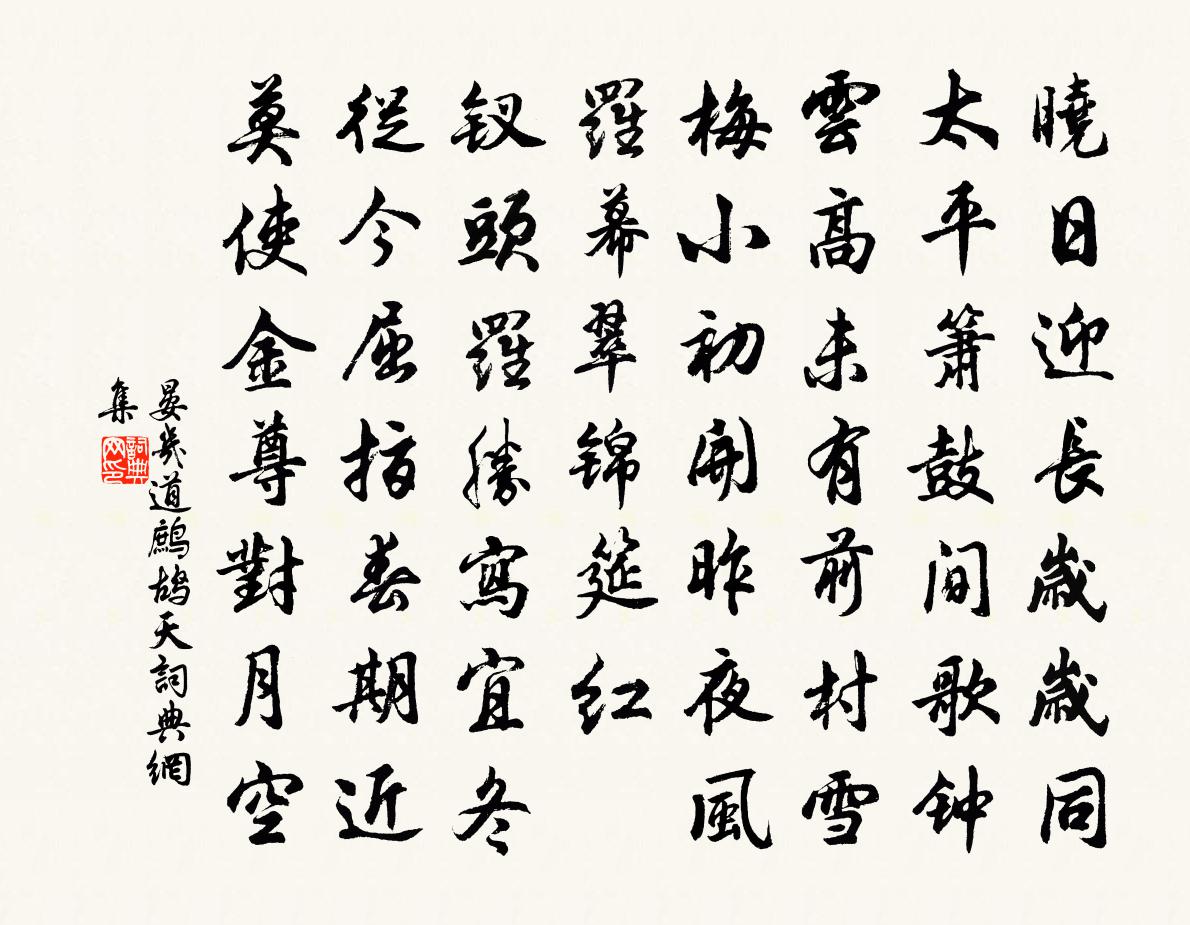 曉日迎長歲歲同
太平簫鼓間歌钟
雲高未有前村雪
梅小初開昨夜風
羅幕翠锦筵红
钗頭羅勝寫宜冬
從今屈指春期近
莫使金尊對月空
晏幾道鷓鴣天詞典網
集
詞典
网印